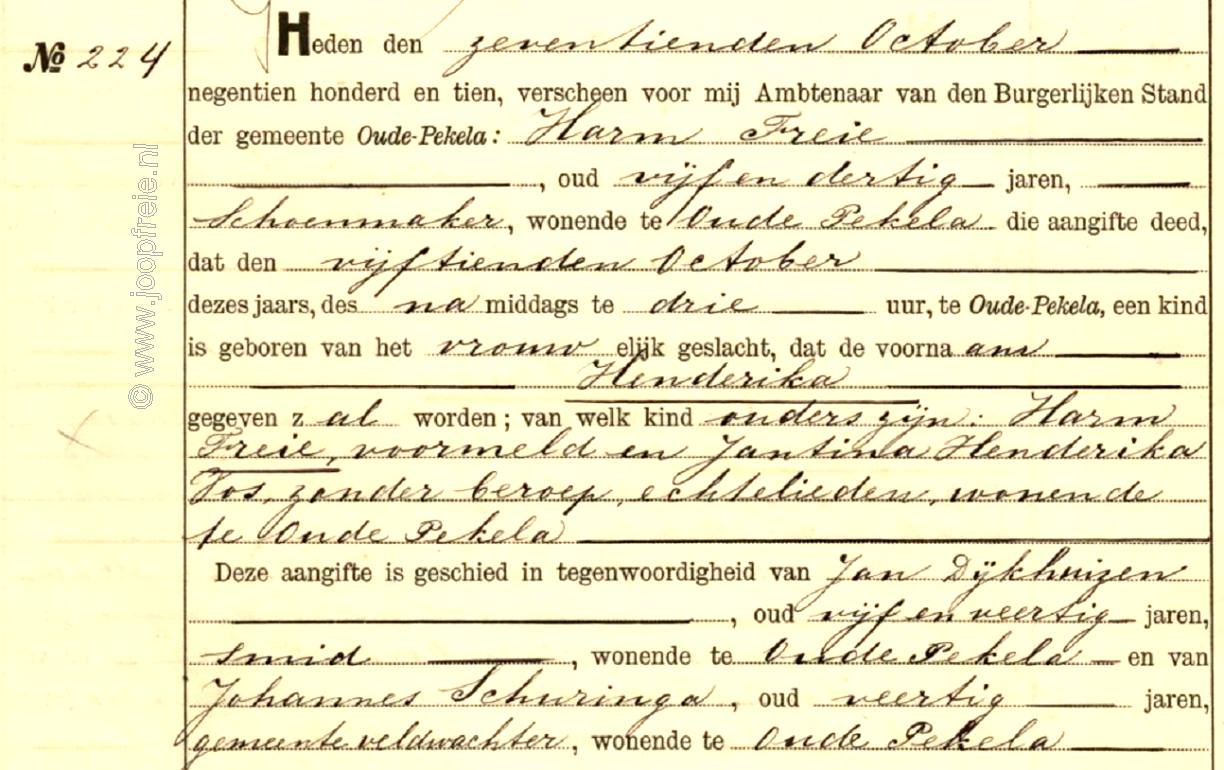 No 224
Heden den zeventienden October
negentien honderd en tien, verscheen voor mij Ambtenaar van den Burgerlijken Stand
der gemeente Oude-Pekela: Harm Freie
, oud vijf en dertig jaren,
Schoenmaker, wonende te Oude Pekela die aangifte deed,
dat den vijftienden October
dezes jaars, des na middags te drie uur, te Oude-Pekela, een kind
is geboren van het vrouw elijk geslacht, dat de voorna am
Henderika
gegeven z al worden; van welk kind ouders zijn: Harm
Freie, voormeld en Jantina Henderika
Vos, zonder beroep, echtelieden, wonende
te Oude Pekela
Deze aangifte is geschied in tegenwoordigheid van Jan Dijkhuizen
, oud vijf en veertig jaren,
smid , wonende te Oude Pekela en van
Johannes Schuringa, oud veertig jaren,
gemeenteveldwachter, wonende te Oude Pekela
© www.joopfreie.nl